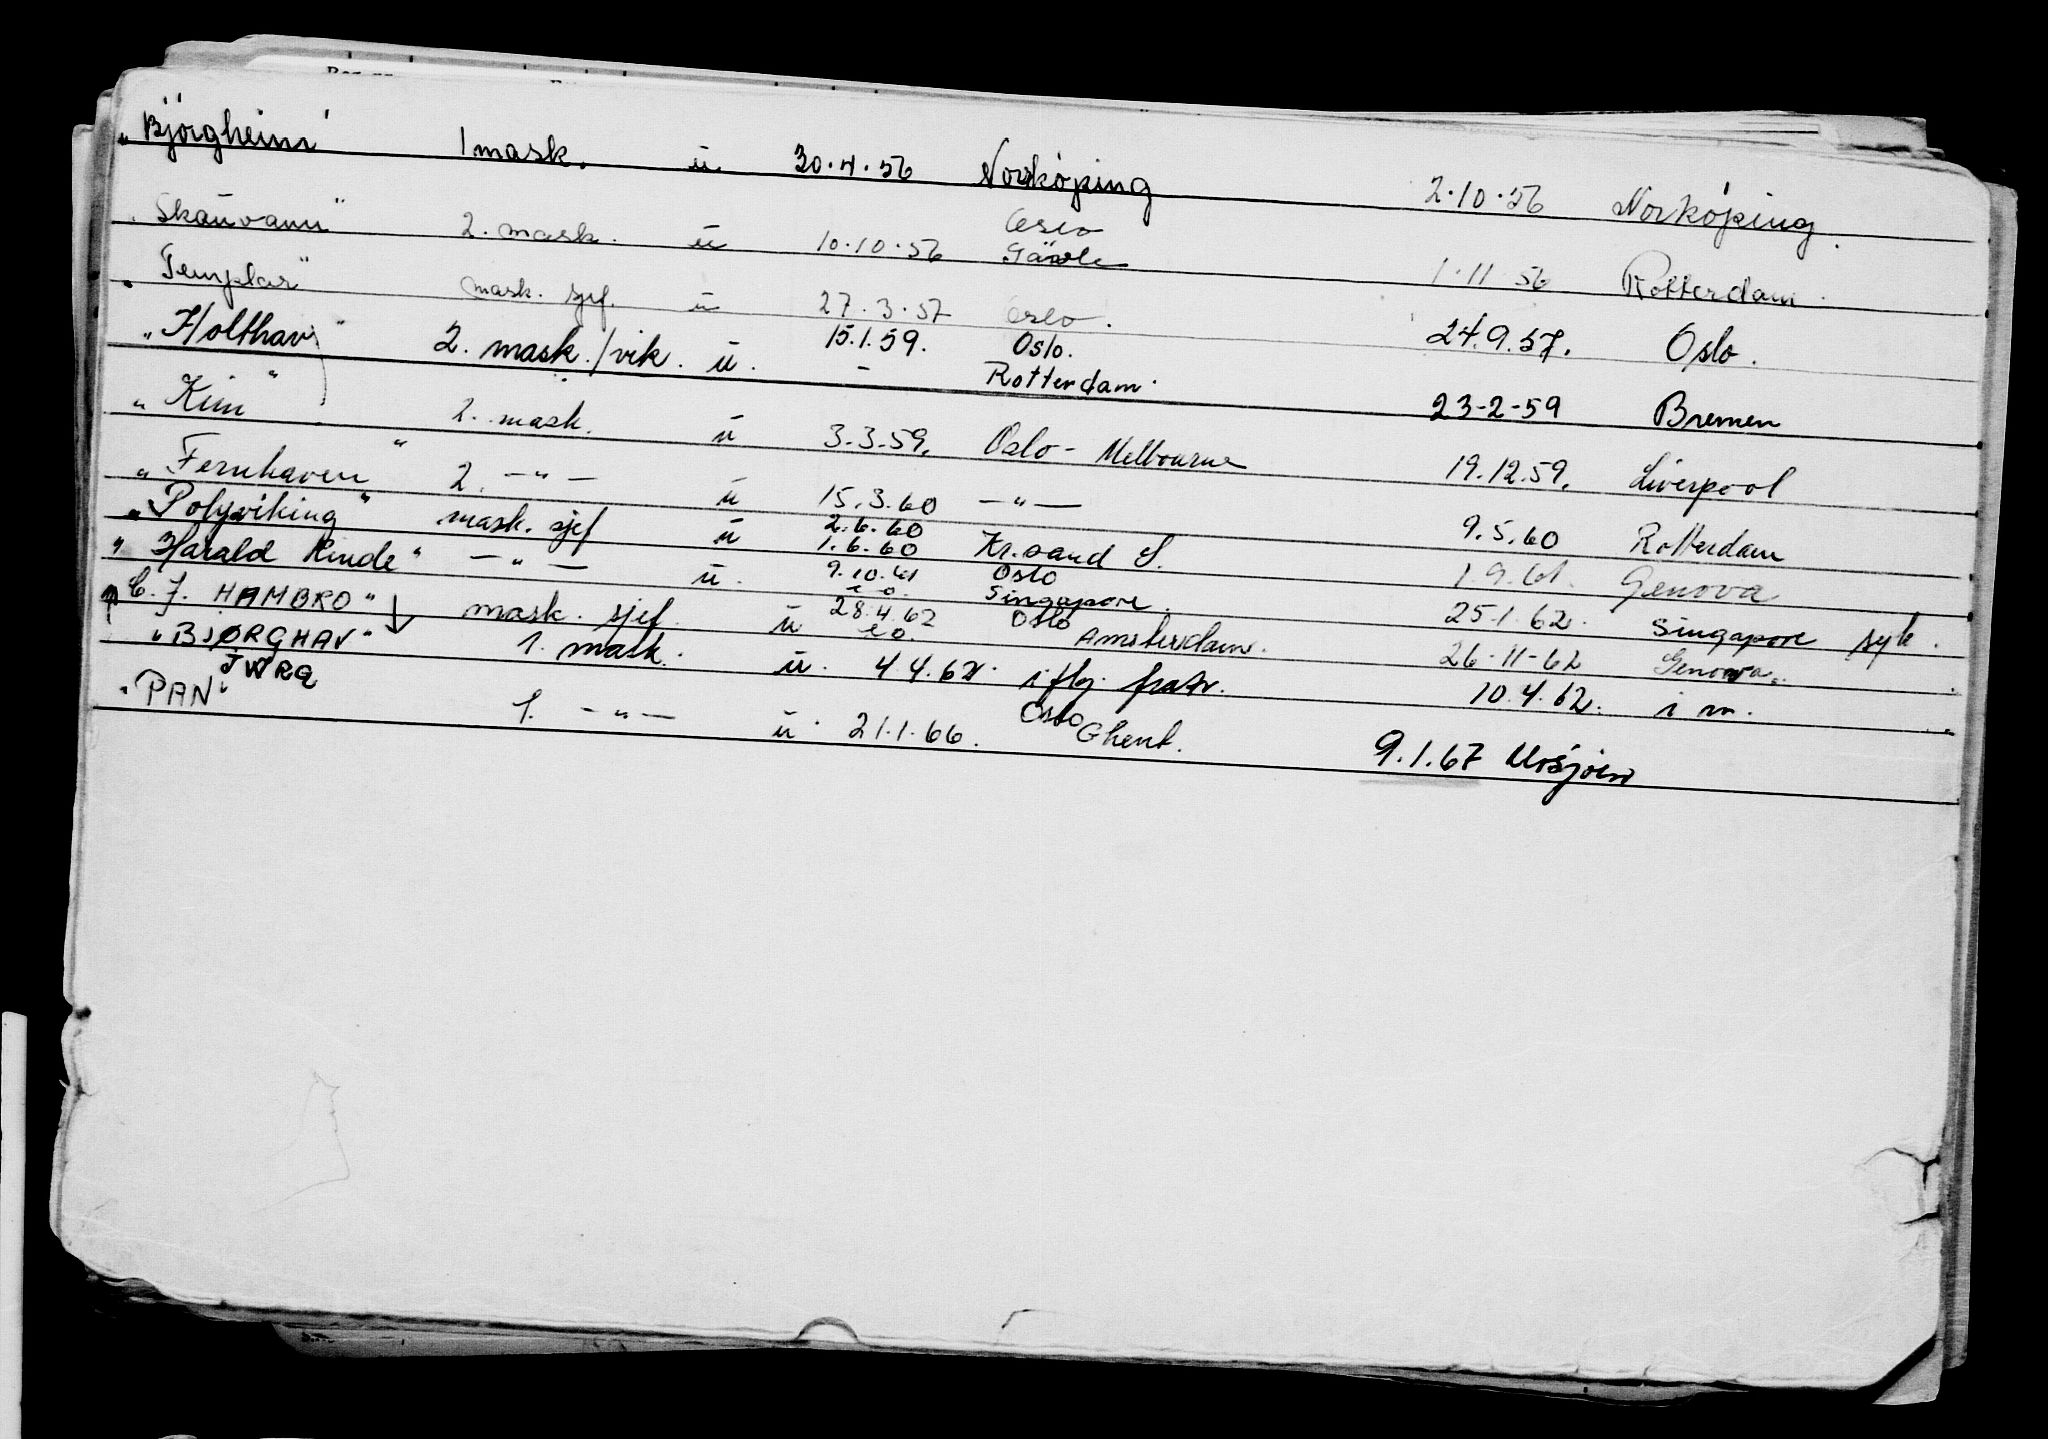 "Bjørgheim" 1 mask. ü 30.4.56 Norrköping 2.10.56 Norköping.
"Skauvann" 2. mask. ü 10.10.56 Oslo Gävle 1.11.56 Rotterdam.
"Templar" mask. sjef. ü 27.3.57 Oslo. 24.9.57. Oslo.
"Holthav" 2. mask./vik. ü. 15.1.59. Oslo. - Rotterdam. 23-2-59 Bremen
"Kim" 2. mask. ü 3.3.59. Oslo - Melbourne 19.12.59. Liverpool
"Fernhaven" 2. -"- ü 15.3.60 -"- 9.5.60 Rotterdam
"Polyviking" mask. sjef ü 2.6.60 1.6.60 Kr.sand S. 1.9.61. Genova
"Harald" -"- ü. 9.10.61 Oslo Singapore. 25-1.62. Singapore syk.
"C. J. HAMBRO" mask. sjef. ü 28.4.62 Oslo Amsterdam. 26-11-62 Genova.
"BJØRGHAV" 1. mask. ü. 4.4.62. i flg. 10.4.62. i m.
"PAN" JWRQ 1. -"- ü. 21.1.66. Oslo Ghent. 9.1.67 Mosjøen